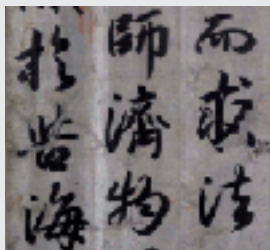 而求法
師濟物
於海